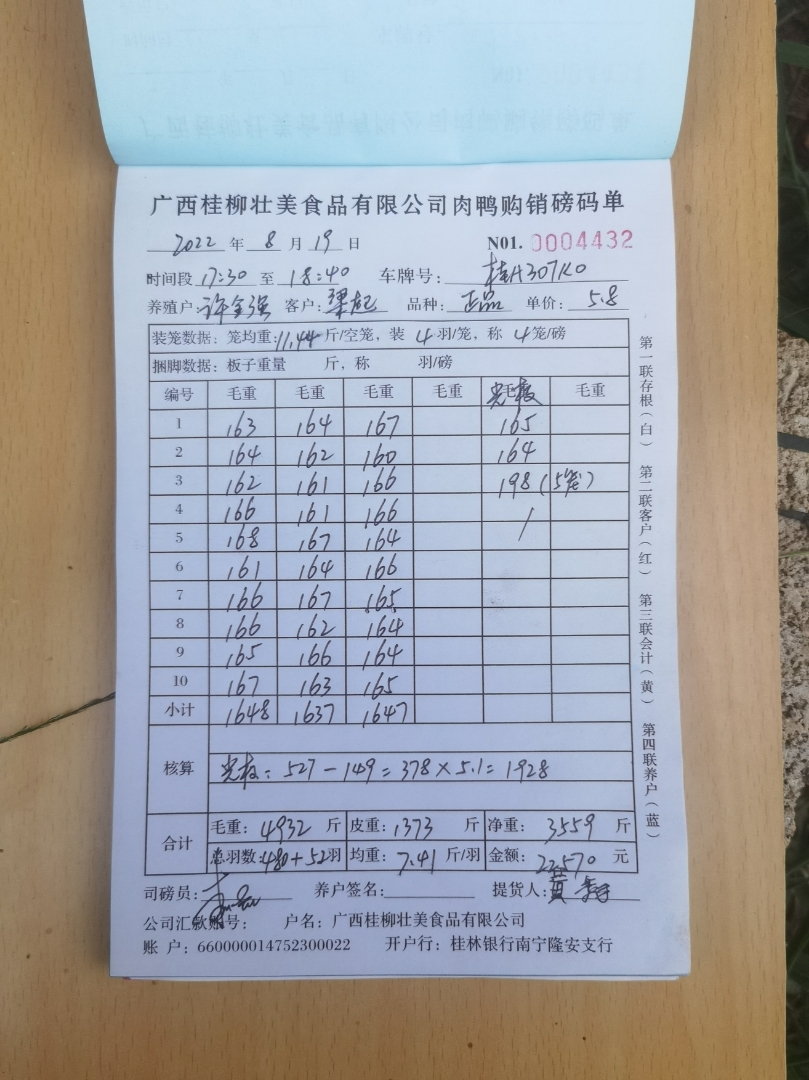 广西桂柳壮美食品有限公司肉鸭购销磅码单
2022 年 8 月 19 日 N01. 0004432
时间段 17:30 至 18:40 车牌号: 桂A307K0
养殖户: 许金强 客户: 梁起 品种: 正品 单价: 5.8
装笼数据: 笼均重: 11.44 斤/空笼, 装 4 羽/笼, 称 4 笼/磅
捆脚数据: 板子重量 斤, 称 羽/磅
编号 毛重 毛重 毛重 毛重 毛重 毛重
1 163 164 167 165
2 164 162 160 164
3 162 161 166 198 (5笼)
4 166 161 166 /
5 168 167 164
6 161 164 166
7 166 167 165
8 166 162 164
9 165 166 164
10 167 163 165
小计 1648 1637 1647
核算 527-149=378×5.1=1928
合计 毛重: 4932 斤 皮重: 1373 斤 净重: 3559 斤
总羽数: 480+52 羽 均重: 7.41 斤/羽 金额: 22570 元
司磅员: 养户签名: 提货人: 黄
公司汇款账号: 户名: 广西桂柳壮美食品有限公司
账 户: 660000014752300022 开户行: 桂林银行南宁隆安支行
第一联存根(白) 第二联客户(红) 第三联会计(黄) 第四联养户(蓝)